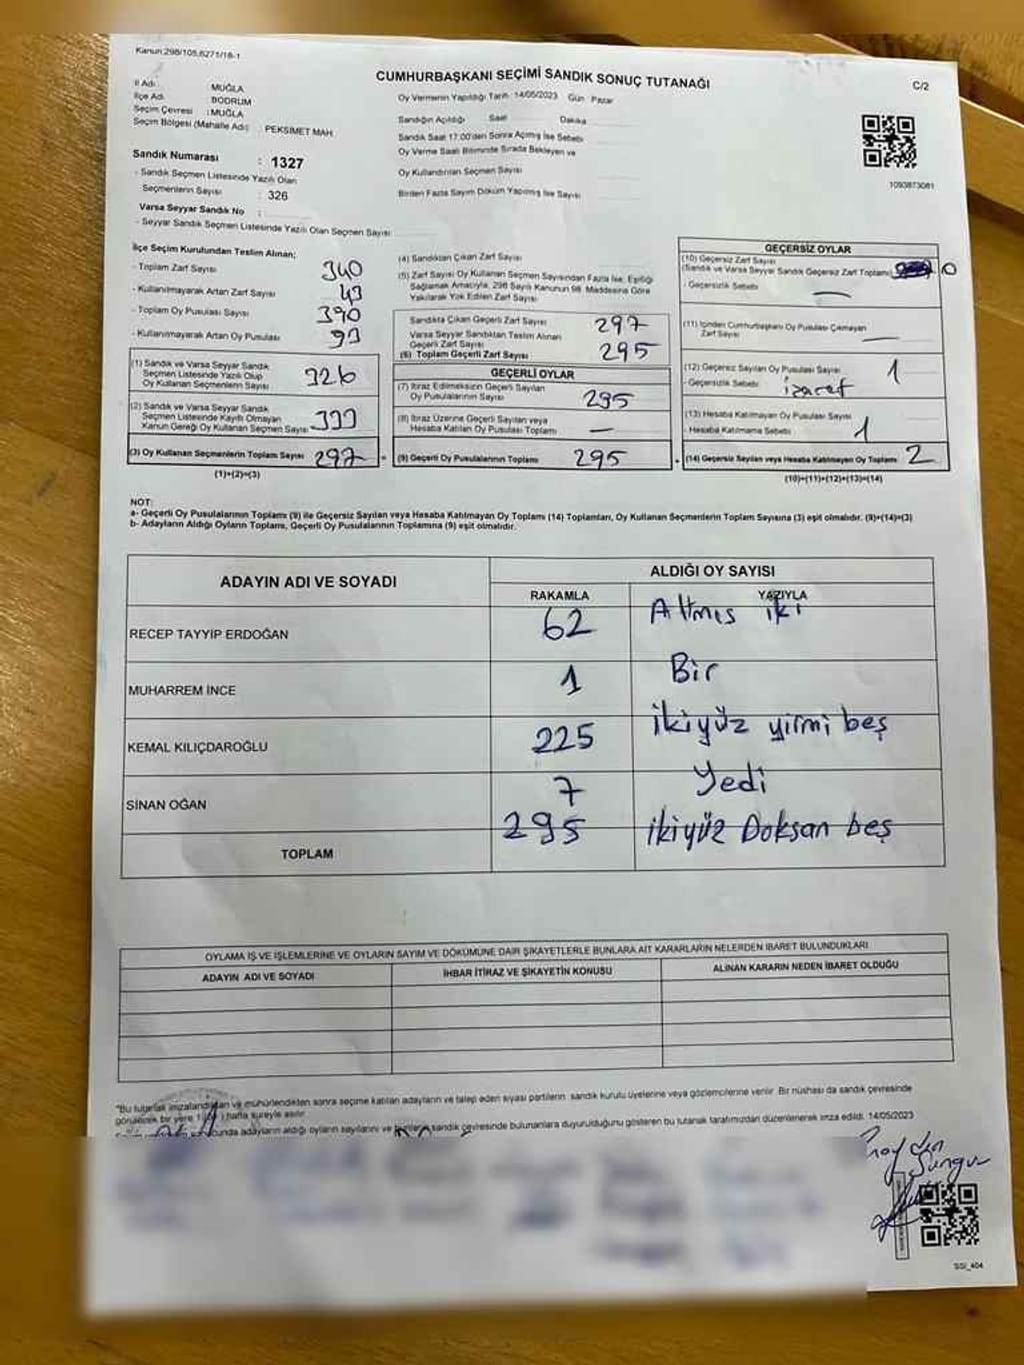 Kanun:298/105,6271/16-1
CUMHURBAŞKANI SEÇİMİ SANDIK SONUÇ TUTANAĞI
C/2
İl Adı : MUĞLA
İlçe Adı : BODRUM
Seçim Çevresi : MUĞLA
Seçim Bölgesi (Mahalle Adı) : PEKSİMET MAH.
Sandık Numarası : 1327
- Sandık Seçmen Listesinde Yazılı Olan
Seçmenlerin Sayısı : 326
Varsa Seyyar Sandık No :
- Seyyar Sandık Seçmen Listesinde Yazılı Olan Seçmen Sayısı
Oy Vermenin Yapıldığı Tarih 14/05/2023 Gün : Pazar
Sandığın Açıldığı Saat Dakika
Sandık Saat 17:00'den Sonra Açmış İse Sebebi
Oy Verme Saati Bitiminde Sırada Bekleyen ve
Oy Kullandırılan Seçmen Sayısı
Birden Fazla Sayım Döküm Yapılmış İse Sayısı
1093873081
İlçe Seçim Kurulundan Teslim Alınan;
- Toplam Zarf Sayısı 340
- Kullanılmayarak Artan Zarf Sayısı 43
- Toplam Oy Pusulası Sayısı 390
- Kullanılmayarak Artan Oy Pusulası 93
(1) Sandık ve Varsa Seyyar Sandık
Seçmen Listesinde Yazılı Olup
Oy Kullanan Seçmenlerin Sayısı 326
(2) Sandık ve Varsa Seyyar Sandık
Seçmen Listesinde Kayıtlı Olmayan
Kanun Gereği Oy Kullanan Seçmen Sayısı
(3) Oy Kullanan Seçmenlerin Toplam Sayısı 297
(1)+(2)=(3)
(4) Sandıktan Çıkan Zarf Sayısı
(5) Zarf Sayısı Oy Kullanan Seçmen Sayısından Fazla İse, Eşitliği
Sağlamak Amacıyla, 298 Sayılı Kanunun 98. Maddesine Göre
Yakılarak Yok Edilen Zarf Sayısı
Sandıkta Çıkan Geçerli Zarf Sayısı 297
Varsa Seyyar Sandıktan Teslim Alınan
Geçerli Zarf Sayısı
(6) Toplam Geçerli Zarf Sayısı 295
GEÇERLİ OYLAR
(7) İtiraz Edilmeksizin Geçerli Sayılan
Oy Pusulalarının Sayısı 295
(8) İtiraz Üzerine Geçerli Sayılan veya
Hesaba Katılan Oy Pusulası Toplamı —
(9) Geçerli Oy Pusulalarının Toplamı 295
GEÇERSİZ OYLAR
(10) Geçersiz Zarf Sayısı
(Sandık ve Varsa Seyyar Sandık Geçersiz Zarf Toplamı) 0
- Geçersizlik Sebebi —
(11) İçinden Cumhurbaşkanı Oy Pusulası Çıkmayan
Zarf Sayısı —
(12) Geçersiz Sayılan Oy Pusulası Sayısı 1
- Geçersizlik Sebebi işaret
(13) Hesaba Katılmayan Oy Pusulası Sayısı
- Hesaba Katılmama Sebebi 1
(14) Geçersiz Sayılan veya Hesaba Katılmayan Oy Toplamı 2
(10)+(11)+(12)+(13)=(14)
NOT:
a- Geçerli Oy Pusulalarının Toplamı (9) ile Geçersiz Sayılan veya Hesaba Katılmayan Oy Toplamı (14) Toplamları, Oy Kullanan Seçmenlerin Toplam Sayısına (3) eşit olmalıdır. (9)+(14)=(3)
b- Adayların Aldığı Oyların Toplamı, Geçerli Oy Pusulalarının Toplamına (9) eşit olmalıdır.
ADAYIN ADI VE SOYADI
ALDIĞI OY SAYISI
RAKAMLA YAZIYLA
RECEP TAYYİP ERDOĞAN 62 Altmış iki
MUHARREM İNCE 1 Bir
KEMAL KILIÇDAROĞLU 225 ikiyüz yirmi beş
SİNAN OĞAN 7 Yedi
TOPLAM 295 ikiyüz Doksan beş
OYLAMA İŞ VE İŞLEMLERİNE VE OYLARIN SAYIM VE DÖKÜMÜNE DAİR ŞİKAYETLERLE BUNLARA AİT KARARLARIN NELERDEN İBARET BULUNDUKLARI
ADAYIN ADI VE SOYADI
İHBAR İTİRAZ VE ŞİKAYETİN KONUSU
ALINAN KARARIN NEDEN İBARET OLDUĞU
*Bu tutanak imzalandıktan ve mühürlendikten sonra seçime katılan adayların ve talep eden siyasi partilerin sandık kurulu üyelerine veya gözlemcilerine verilir. Bir nüshası da sandık çevresinde
görülecek bir yere 1 hafta süreyle asılır.
adayların aldığı oyların sayılarını ve sandık çevresinde bulunanlara duyurulduğunu gösteren bu tutanak tarafımızdan düzenlenerek imza edildi. 14/05/2023
SSI_404